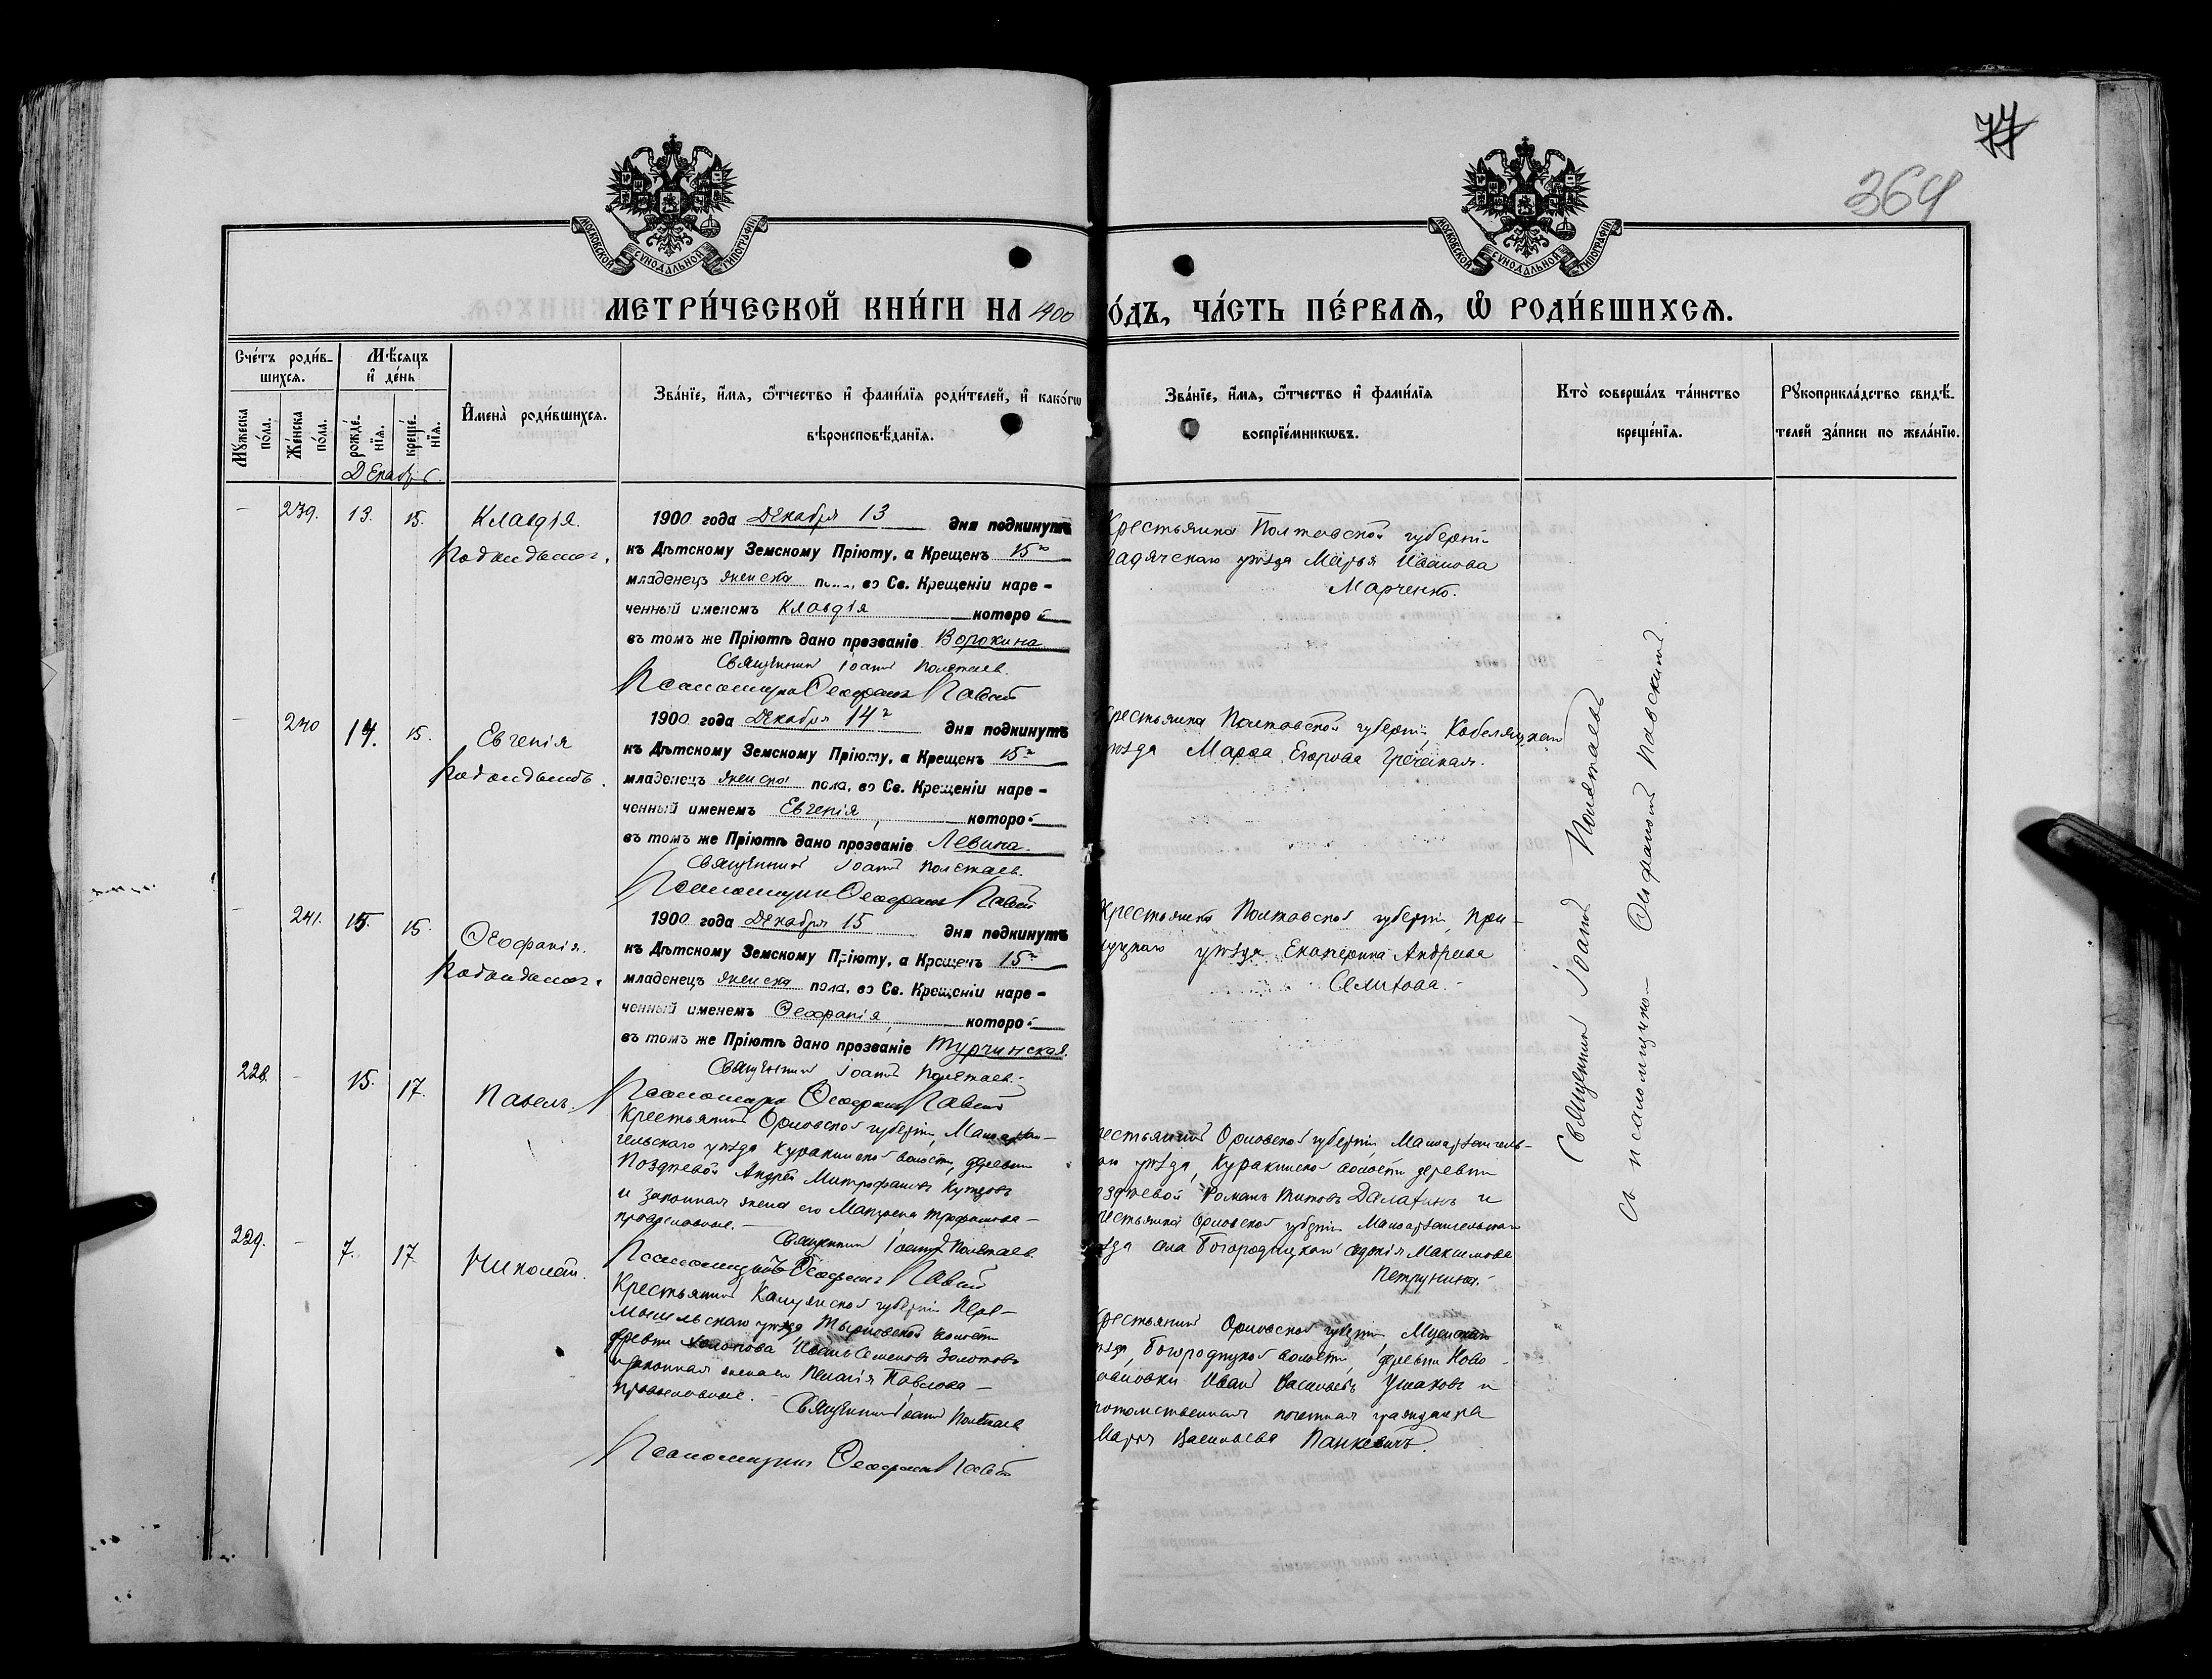 77
364
МОСКОВСКОЙ СѴНОДАЛЬНОЙ ТИПОГРАФІИ
МОСКОВСКОЙ СѴНОДАЛЬНОЙ ТИПОГРАФІИ
МЕТРИ́ЧЕСКОЙ КНИ́ГИ НА 1900
О́ДЪ, ЧА́СТЬ ПЕ́РВАѦ, Ѽ РОДИ́ВШИХСѦ.
Сче́тъ роди́в-
шихсѧ.
Мꙋжеска
по́ла.
Же́нска
по́ла.
Мѣ́сѧцъ
и҆ де́нь
рожде́-
нїѧ.
креще́-
нїѧ.
Декабрь
И҆мена̀ роди́вшихсѧ.
Зва́нїе, и҆́мѧ, ѻ҆́тчество и҆ фами́лїѧ роди́телей, и҆ како́гѡ
вѣроисповѣ́данїѧ.
Зва́нїе, и҆́мѧ, ѻ҆́тчество и҆ фами́лїѧ
воспрїе́мникѡвъ.
Кто̀ соверша́лъ та́инство
креще́нїѧ.
Рꙋкоприкла́дство свидѣ́-
телей за́писи по жела́нїю.
- 239. 13. 15. Клавдія.
Подкидышъ.
1900 года Декабря 13 дня подкинутъ
къ Дѣтскому Земскому Пріюту, а Крещенъ 15го
младенецъ женска п..., во Св. Крещеніи наре-
ченный именемъ Клавдія которой
въ томъ же Пріютѣ дано прозваніе Ворожина
Священникъ Іоаннъ Полетаев.
Псаломщикъ Ѳеофанъ
Крестьянка Полтавской губерніи
Гадячскаго уѣзда Марья Иванова
Марченко.
- 240 14. 15. Евгенія
Подкидышъ.
1900 года Декабря 14го дня подкинутъ
къ Дѣтскому Земскому Пріюту, а Крещенъ 15го
младенецъ женска пола, во Св. Крещеніи наре-
ченный именемъ Евгенія, которой
въ томъ же Пріютѣ дано прозваніе Левина.
Священникъ Іоаннъ Полетаевъ.
Псаломщикъ Ѳеофанъ
рестьянка Полтавской губерніи, Кобелякскаго
уѣзда Марѳа Егорова
- 241. 15. 15. Ѳеофанія.
Подкидышъ.
1900 года Декабря 15 дня подкинутъ
къ Дѣтскому Земскому Пріюту, а Крещенъ 15го
младенецъ женска пола, во Св. Крещеніи наре-
ченный именемъ Ѳеофанія, которой
въ томъ же Пріютѣ дано прозваніе Турчинская.
Священникъ Іоаннъ Полетаев.
Псаломщикъ Ѳеофанъ
Крестьянка Полтавской губерніи, При-
луцкаго уѣзда Екатерина Андреева
Селихова.
228. - 15. 17. Павелъ.
Крестьянинъ Орловской губерніи, Малоархан-
гельскаго уѣзда Куракинской волости, деревни
Поздѣевой Андрей Митрофановъ
и законная жена его Матрена Трофимова -
православные.
Священникъ Іоаннъ Полетаев.
Псаломщикъ Ѳеофанъ
рестьянинъ Орловской губерніи, Малоархангель-
аго уѣзда, Куракинской волости деревни
оздѣевой Романъ Титовъ Далатинъ и
рестьянка Орловской губерніи Малоархангельскаго
уѣзда села Богородицкаго Максимова
Петрунина.
229. - 7. 17. Николай.
Крестьянинъ Калужской губерніи Пере-
мышльскаго уѣзда волости
деревни Иванъ Семеновъ Золотовъ
и законная жена его Пелагія Павлова -
православные.
Священникъ Іоаннъ Полетаев
Псаломщикъ Ѳеофанъ
рестьянинъ Орловской губерніи, Мценскаго
уѣзда, Богородицкой волости, деревни Ново-
Иванъ Васильевъ Ушаковъ и
потомственная почетная гражданка
Марья Васильева Панкевичъ.
Священникъ Іоаннъ Полетаевъ
съ псаломщикомъ Ѳеофаномъ Павскимъ.